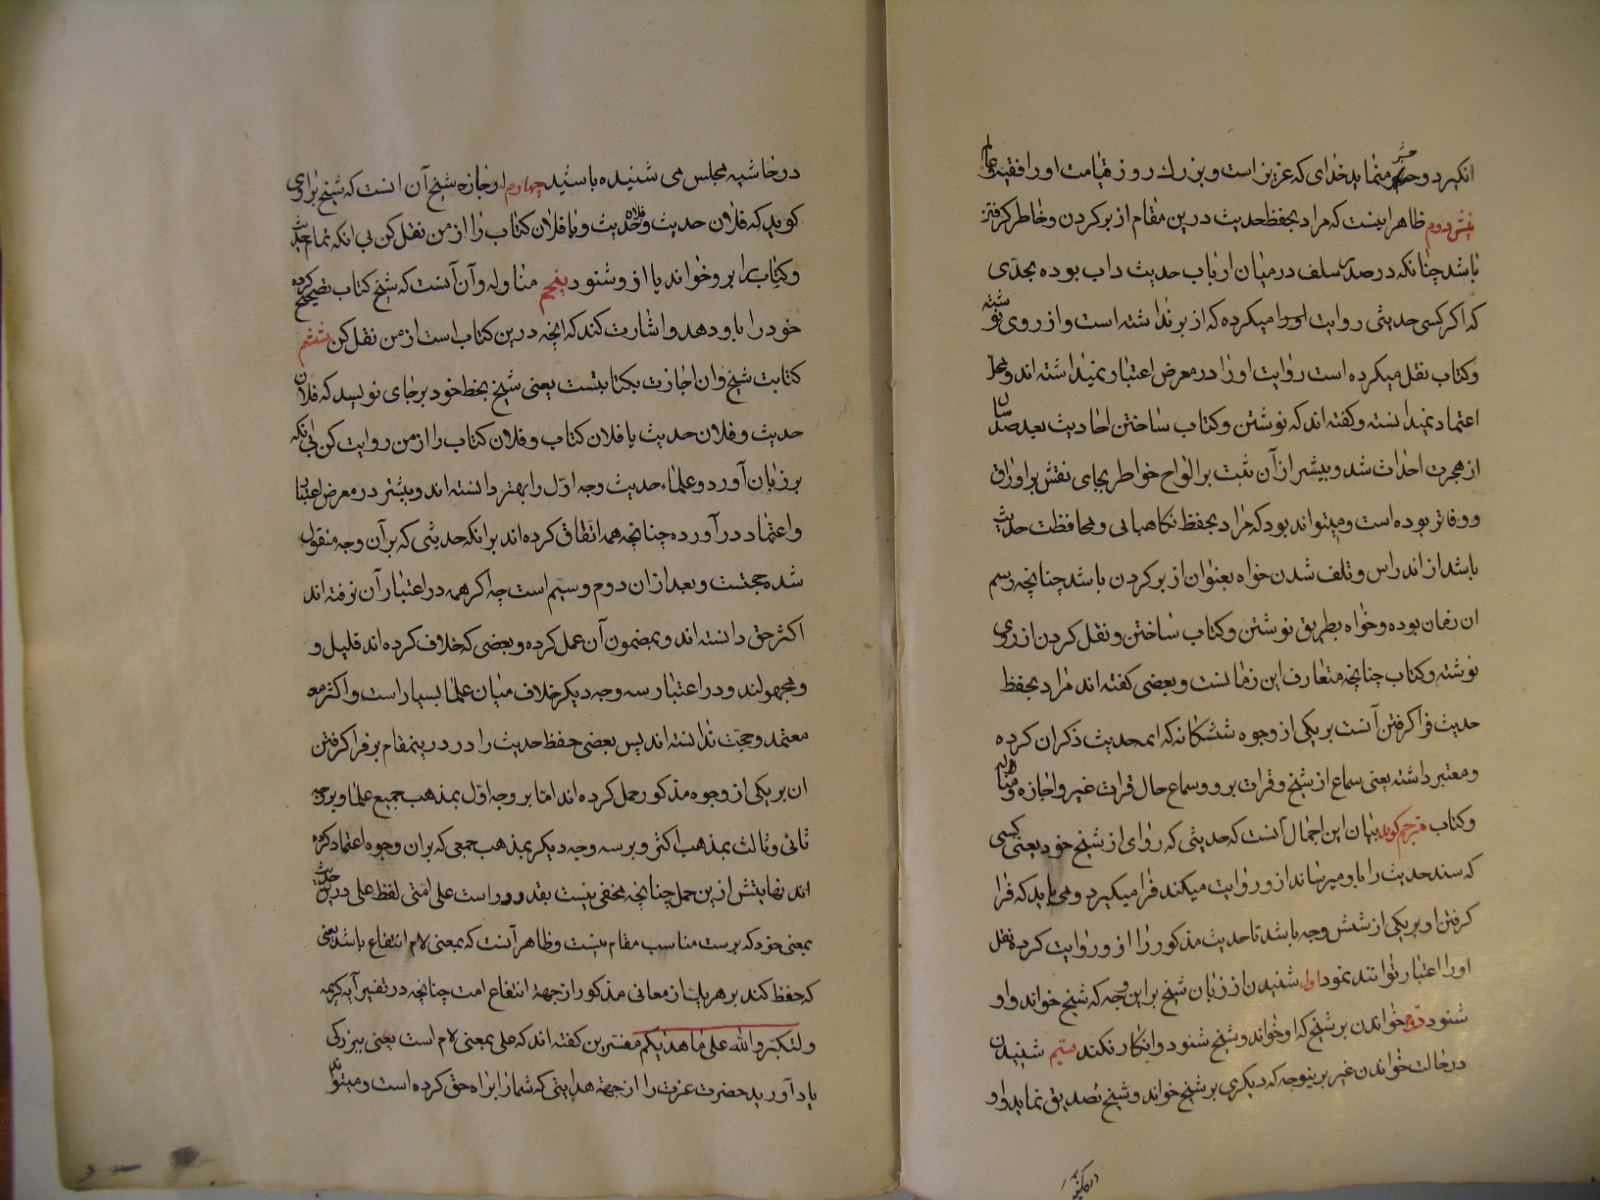 انکیرد و حشر منماید خدای که عزیز است و بزرک روز قیامت او را فقیه عالم
بیش دوم ظاهر اینست که مراد بحفظ حدیث درین مقام از بر کردن و خاطر کرفتن
باشد چنانکه در صدر سلف در میان ارباب حدیث داب بوده بحدّی
که اکر کسی حدیثی روایت میکرده که از بر نداشته است و از روی نوشته
و کتاب نقل میکرده است روایت او را در معرض اعتبار نمیداشته اند و محل
اعتماد نمیدانسته و کفته اند که نوشتن و کتاب ساختن احادیث بعد صد سال
از هجرت احداث شد و بیشتر از آن ثبت بر الواح خواطر بجای نقش بر اوراق
و دفاتر بوده است و میتواند بود که مراد بحفظ نکاهبانی و محافظت حدیث
باشد از اندراس و تلف شدن خواه بعنوان از بر کردن باشد چنانچه رسم
ان زمان بوده و خواه بطریق نوشتن و کتاب ساختن و نقل کردن از روی
نوشته و کتاب چنانچه متعارف این زمانست و بعضی کفته اند مراد بحفظ
حدیث فرا کرفتن آنست بر یکی از وجوه ششکانه که ائمه حدیث ذکر ان کرده
و معتبر داشته یعنی سماع از شیخ و قرات بر و و سماع حال قرات غیر و اجازه و مناوله
و کتاب مترجم کوید بیان این اجمال آنست که حدیثی که راوی از شیخ خود یعنی کسی
که سند حدیث را باو میرساند از و روایت میکند فرا میکیرد و می باید که فرا
کرفتن او بر یکی از شش وجه باشد تا حدیث مذکور را از و روایت کرده نقل
او را اعتبار توانند نمود اول شنیدن از زبان شیخ بر این وجه که شیخ خواند و او
شنود دوم خواندن بر شیخ که او خواند و شیخ شنود و انکار نکند سیم شنیدن
در حالت خواندن غیر برینوجه که دیکری بر شیخ خواند و شیخ تصدیق نماید و او
در حاشیه مجلس می شنیده باشد چهارم اجازه شیخ آن انست که شیخ براوی
کوید که فلان حدیث و فلان حدیث و یا فلان کتاب را از من نقل کن بی انکه تمام حدیث
و کتاب را برو خواند یا از و شنود پنجم مناوله و آن آنست که شیخ کتاب تصحیح کرده
خود را باو دهد و اشارت کند که انچه درین کتاب است از من نقل کن ششم
کتابت شیخ و ان اجازت بکتابتست یعنی شیخ بخط خود بر جای نویسد که فلان
حدیث و فلان حدیث یا فلان کتاب و فلان کتاب را از من روایت کن بی انکه
بر زبان آورد و علماء حدیث وجه اوّل را بهتر دانسته اند و بیشتر در معرض اعتبار
و اعتماد در آورده چنانچه همه اتفاق کرده اند بر انکه حدیثی که بر آن وجه منقول
شده حجتست و بعد از ان دوم و سیّم است چه اکر همه در اعتبار آن نرفته اند
اکثر حق دانسته اند و بمضمون آن عمل کرده و بعضی که خلاف کرده اند قلیل و
و مجهولند و در اعتبار سه وجه دیکر خلاف میان علما بسیار است و اکثر
معتمد و حجّت ندانسته اند پس بعضی حفظ حدیث را در درینمقام بر فرا کرفتن
ان بر یکی از وجوه مذکور حمل کرده اند امّا بر وجه اوّل بمذهب جمیع علما و بر وجه
ثانی و ثالث بمذهب اکثر و بر سه وجه دیکر بمذهب جمعی که بران وجوه اعتماد کرده
اند نهایتش ازین حمل چنانچه مخفی نیست بقدر دور است علی امّتی لفظ علی درین حدیث
بمعنی خود که برست مناسب مقام نیست و ظاهر آنست که بمعنی لام انتفاع باشد یعنی
که حفظ کند بر هر یک از معانی مذکور از جهة انتفاع امت چنانچه در تفسیر آیه کریمه
ولتکبّروا الله علی ما هدیکم مفسّرین کفته اند که علی بمعنی لام است یعنی ببزرکی
یاد آورید حضرت عزت را از جهة هدایتی که شما را براه حق کرده است و میتواند